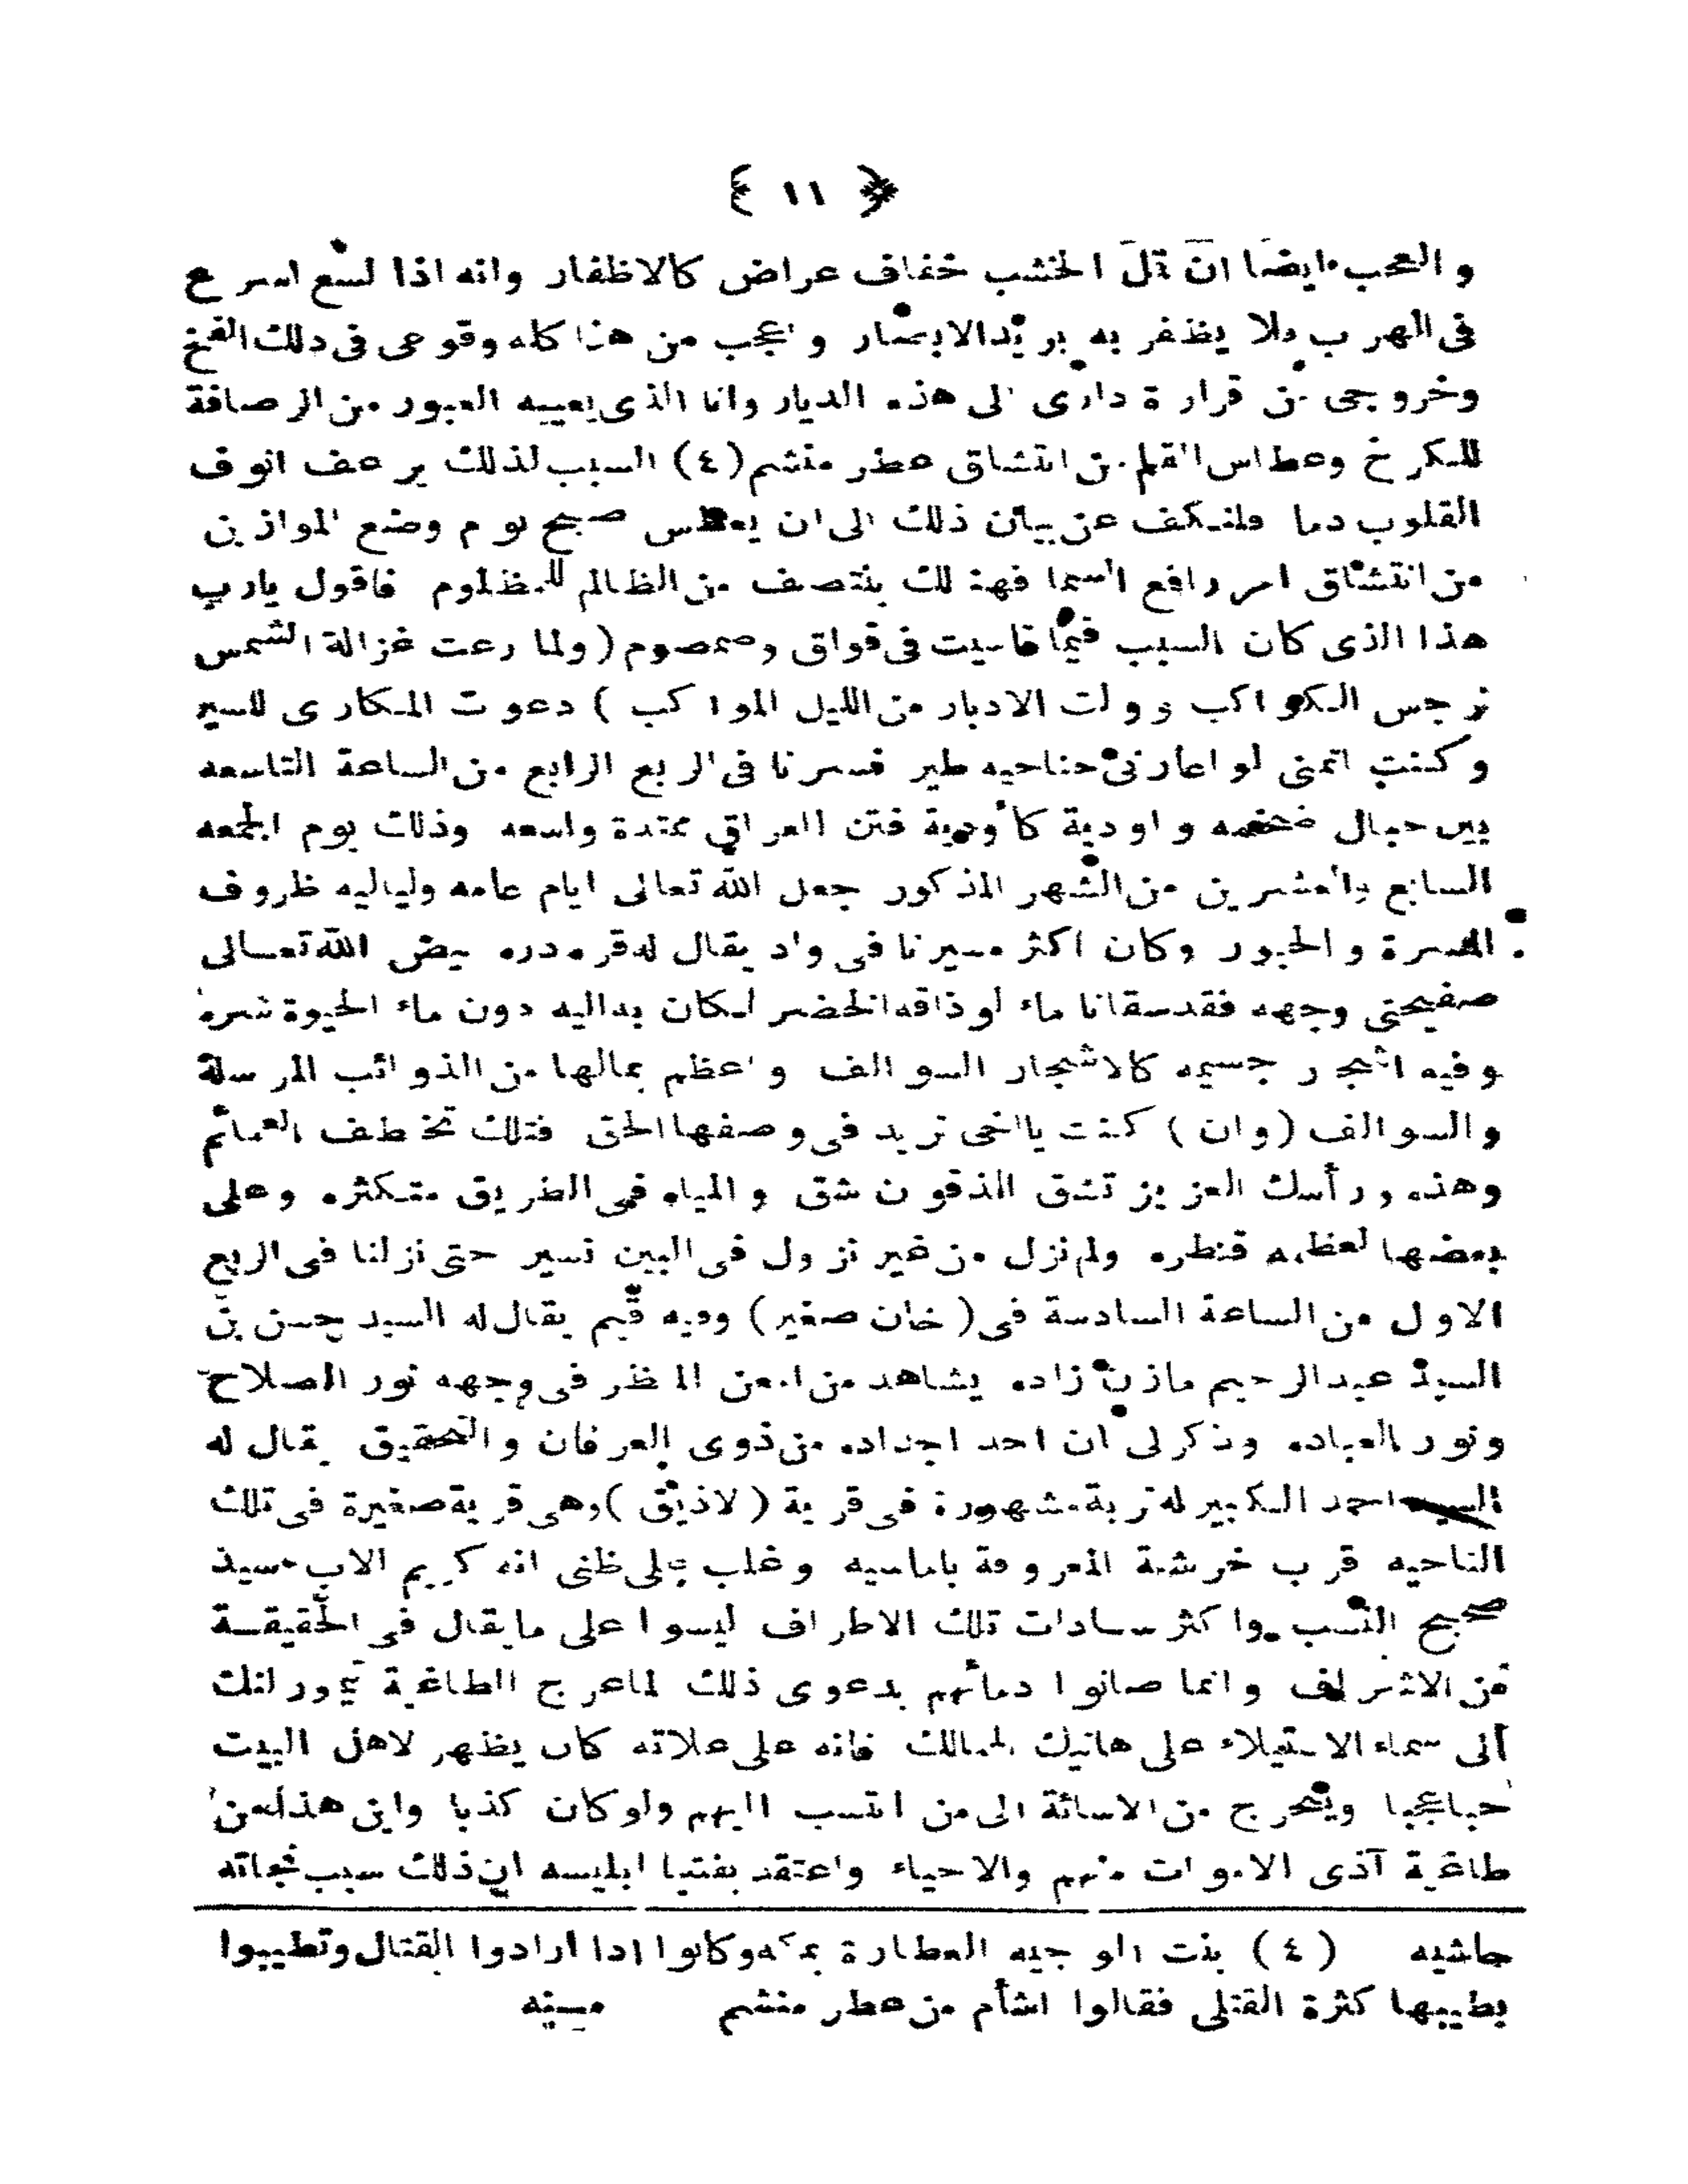 ﴿ ١١ ﴾
والعجب ايضا ان قمل الخشب خفاف عراض كالاظفار وانه اذا لسع اسرع
فى الهرب فلا يظفر به بريد الابصار واعجب من هذا كله وقوعى فى ذلك الفخ
وخروجى من قرارة دارى الى هذه الديار وانا الذى يعييه العبور من الرصافة
للكرخ وعطاس القلم من انتشاق عطر منشم (٤) السبب لذلك يرعف انوف
القلوب دما فلنكف عن بيان ذلك الى ان يعطس صبح يوم وضع الموازين
من انتشاق امر رافع السما فهنالك ينتصف من الظالم للمظلوم فاقول يارب
هذا الذى كان السبب فيما قاسيت فى قواق وصمصوم (ولما رعت غزالة الشمس
نرجس الكواكب وولت الادبار من الليل المواكب) دعوت المكارى للسير
وكنت اتمنى لو اعارنى جناحيه طير فسرنا فى الربع الرابع من الساعة التاسعه
بين جبال ضخمه واودية كأودية فتن العراق ممتدة واسعه وذلك يوم الجمعه
السابع والعشرين من الشهر المذكور جعل الله تعالى ايام عامه ولياليه ظروف
المسرة والحبور وكان اكثر مسيرنا فى واد يقال له قره دره بيض الله تعالى
صفيحتى وجهه فقد سقانا ماء لو ذاقه الخضر لكان يداليه دون ماء الحيوة شره
وفيه اشجار جسيمه كالاشجار السوالف واعظم بمالها من الذوائب المرسلة
والسوالف (وان) كنت يا اخى تريد فى وصفها الحق فتلك تخطف العمائم
وهذه ورأسك العزيز تشق الذقون شق والمياه فى الطريق متكثره وعلى
بعضها لعظمه قنطره ولم نزل من غير نزول فى البين نسير حتى نزلنا فى الربع
الاول من الساعة السادسة فى (خان صغير) وفيه قيم يقال له السيد حسن بن
السيد عبد الرحيم مازن زاده يشاهد من امعن النظر فى وجهه نور الصلاح
ونور العباده وذكر لى ان احد اجداده من ذوى العرفان والتحقيق يقال له
السيد احمد الكبير له تربة مشهورة فى قرية (لاذيق) وهى قرية صغيرة فى تلك
الناحيه قرب خرشنة المعروفة باماسيه وغلب على ظنى انه كريم الاب سيد
صحيح النسب واكثر سادات تلك الاطراف ليسوا على ما يقال فى الحقيقة
من الاشراف وانما صانوا دمائهم بدعوى ذلك لما عرج الطاغية تيمورلنك
الى سماء الاستيلاء على هاتيك الممالك فانه على علاته كان يظهر لاهل البيت
حبا عجبا ويتحرج من الاسائة الى من انتسب اليهم ولو كان كذبا واين هذا من
طاغية آذى الاموات منهم والاحياء واعتقد بفتيا ابليسه ان ذلك سبب نجاته
حاشيه (٤) بنت الوجيه العطارة بمكه وكانوا اذا ارادوا القتال وتطيبوا
بطيبها كثرة القتلى فقالوا اشأم من عطر منشم مـنه